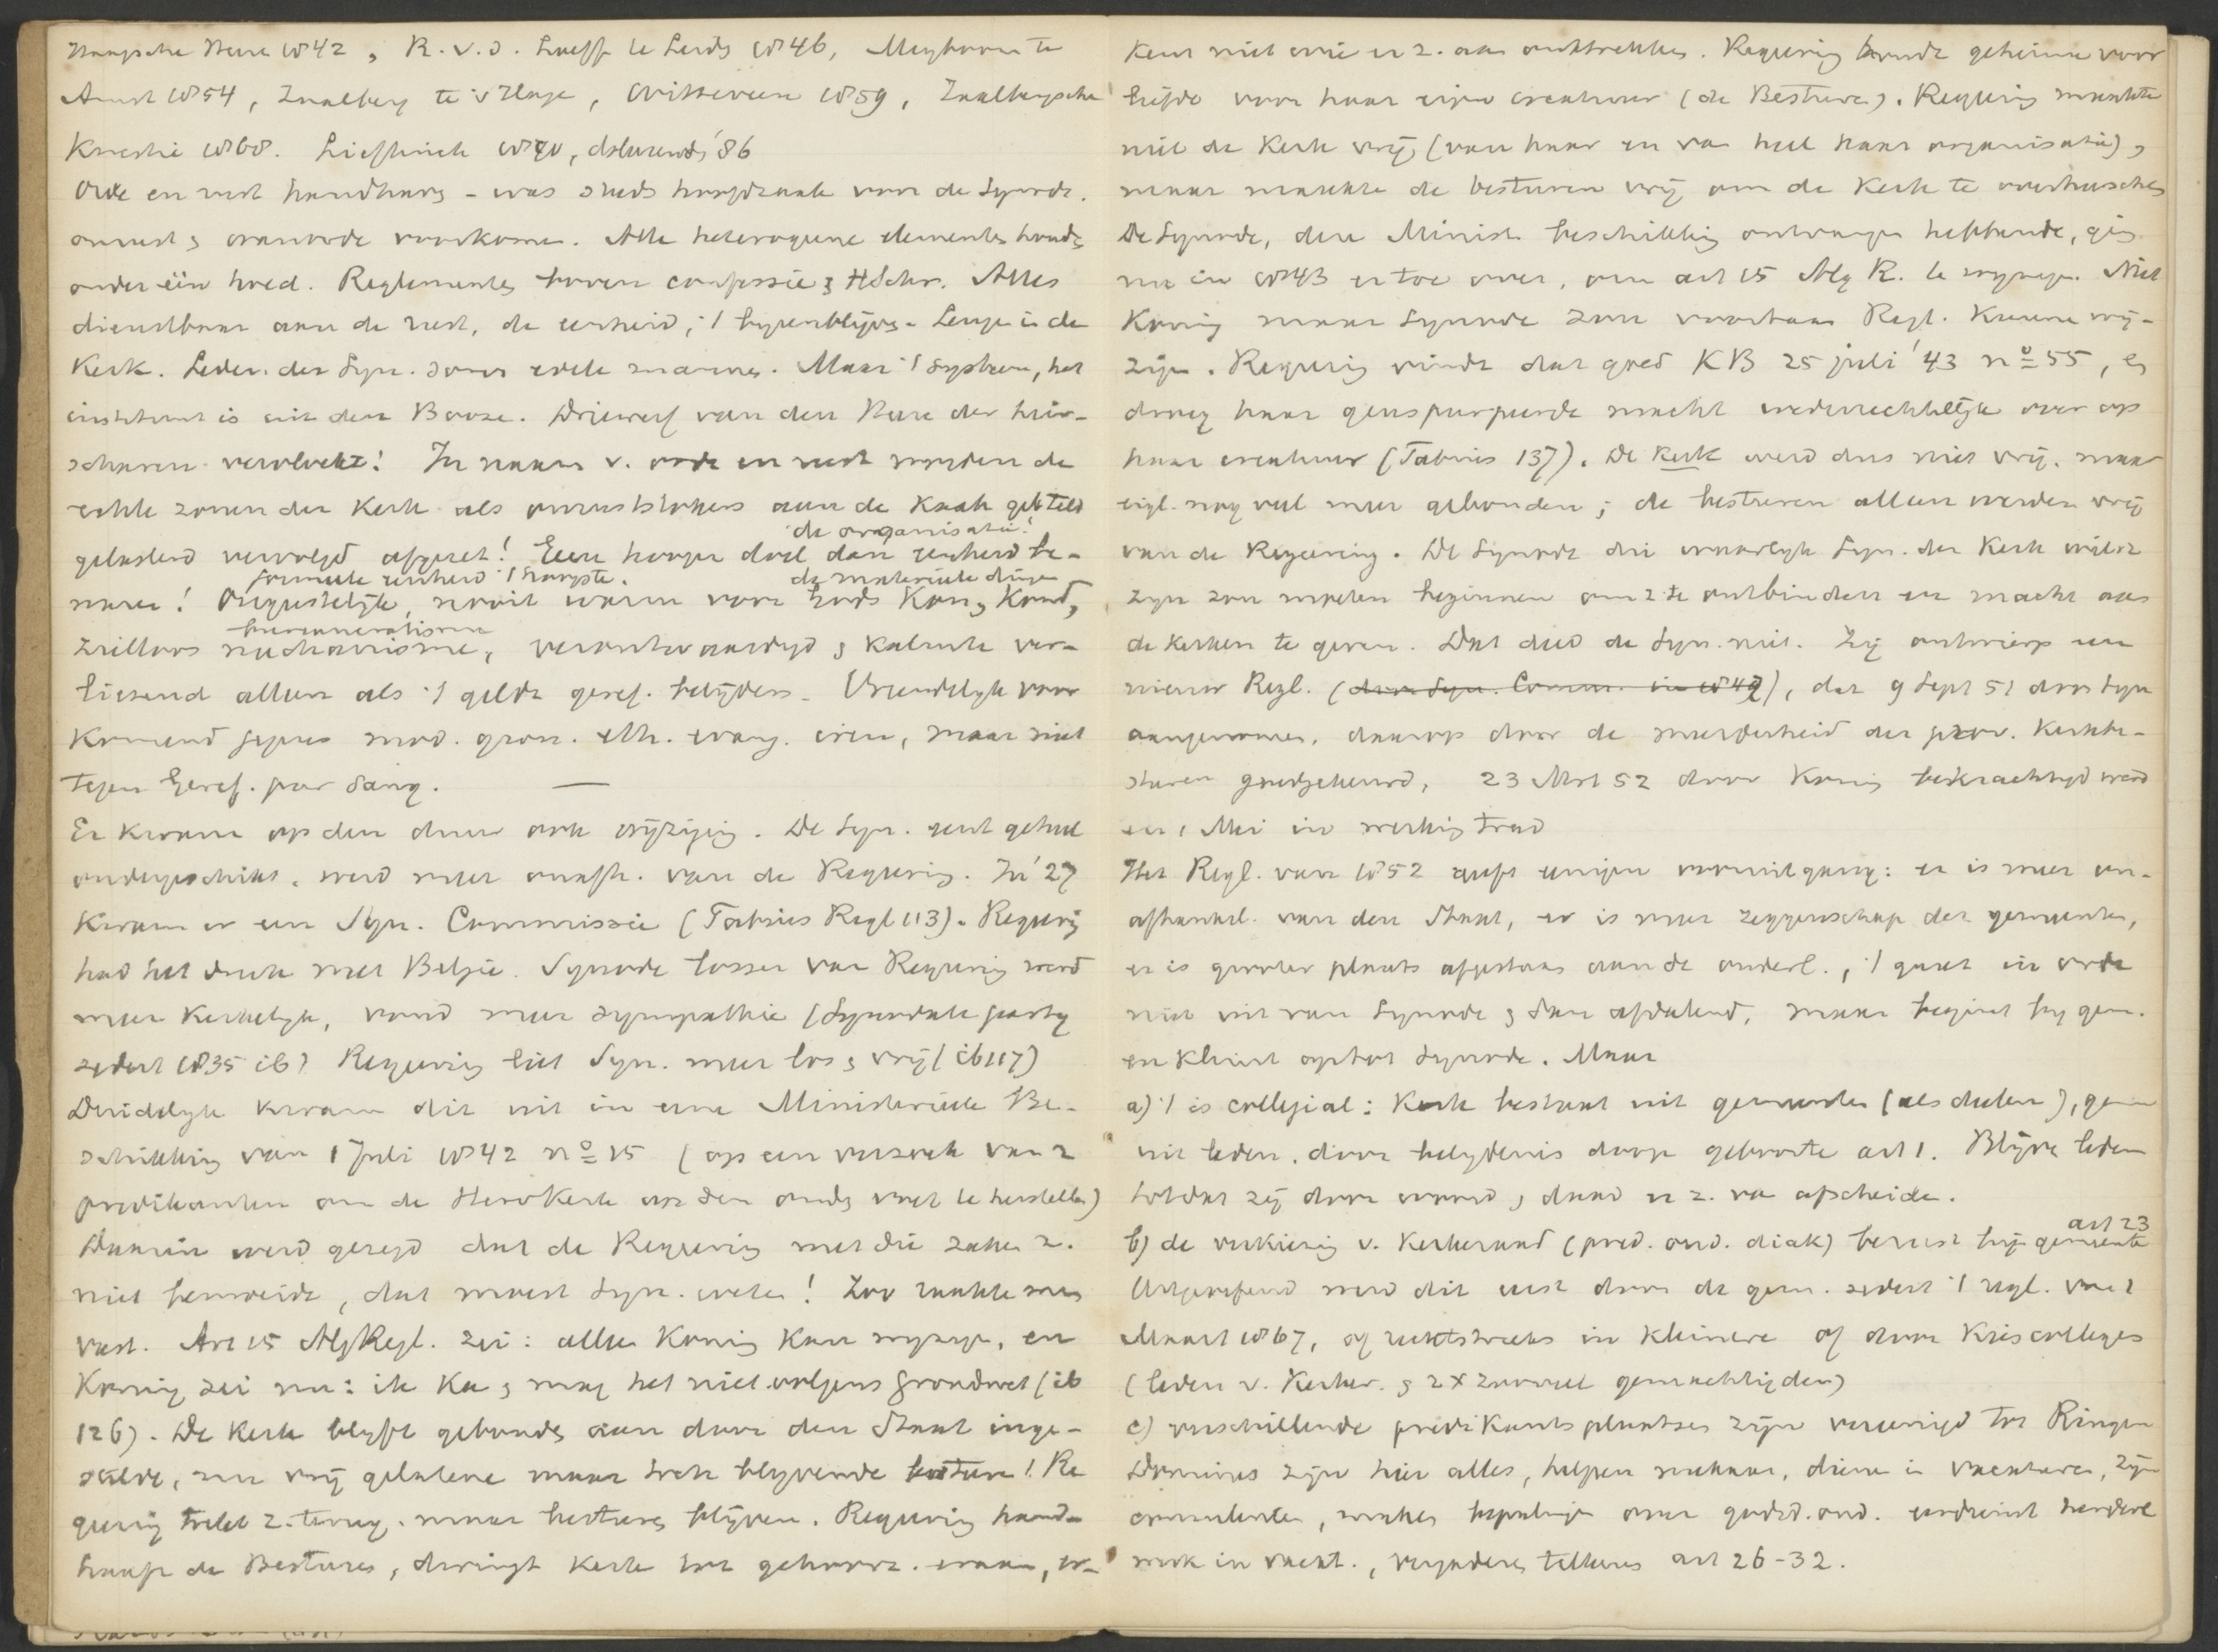 Haagsche Heere 1842, R. v.d. Loeff te Leids 1846, Meyboom te
Amst 1854, Zaalberg te 's Hage, Witteveen 1859, Zaalbergsche
Kwestie 1868. Liefthinck 1890, doleerend '86
Orde en rust handhavg - was steeds hoofdzaak voor de Synode.
onrust & wanorde voorkomen. Alle heterogeene elementen houdg
onder één hoed. Reglementen boven confessie & HSchr. Alles
dienstbaar aan de rust, de eenheid, 't byeenblijven. Leuge in de
Kerk. Leden der Syn. soms edele mannen. Maar 't systeem, het
instituut is uit den Booze. Driewerf van den Heere der heir-
scharen vervloekt! In naam v. orde en rust worden de
echte zonen der Kerk als onruststokers aan de kaak gesteld
gelasterd vervolgd afgezet! Geen hooger doel dan eenheid be-
de organisatie!
waren! Ongeestelijk, nooit warm voor Gods Kon. & Komst,
formeele eenheid 't hoogste. de materieele dingen
zielloos mechanisme, verontwaardigd & kalmte ver-
bureaucratisme
liezend alleen als 't geldt geref. belijders. Vriendelyk voor
komend jegens mod. gron. eth. evang. iren, maar niet
tegen Geref. pur sang. —
Er kwam op den duur ook wijziging. De Syn. eerst geheel
ondergeschikt, werd meer onafh. van de Regeering. In '27
kwam er een Syn. Commissie (Fabius Regl 113). Regeerig
had het druk met Belgie. Synode losser van Regeerig werd
meer Kerkelyk, vond meer sympathie (Synodale party
sedert 1835 ib) Regeerig liet Syn. meer los & vrij (ib 117)
Duidelyk kwam dit uit in eene Ministerieele Be-
schikking van 1 Juli 1842 no 15 (op een verzoek van 2
predikanten om de HervKerk op den ouden voet te herstellen)
Daarin werd gezegd dat de Regeerig met die zaken z.
niet bemoeide, dat moest Syn. weten! Zoo raakte men
vast. Art 15 AlgRegl. zei: alleen Koning kan wyzigen, en
Koning zei nu: ik ka & mag het niet volgens grondwet (ib
126). De Kerk blyft gebonden aan door den Staat inge-
stelde, nu vrij gelatene maar toch blyvende besturen! Re
geerig trekt z. terug. maar besturen blijven. Regeerig hand-
haaft de Besturen, dwingt kerk tot gehoorz. eraan, er-
kent niet wie er z. aan onttrekken. Regeerig koude geheime voor
liefde voor haar eigen creatuur (de Besturen). Regeerig maakte
niet de Kerk vrij (van haar en van heel haar organisatie),
maar maakte de besturen vrij om de Kerk te overheerschen
De Synode, deze Minist. beschikking ontvangen hebbende, ging
nu in 1843 er toe over, om art 15 Alg R. te wyzigen. Niet
Koning maar Synode zou voortaan Regl. kunne wij-
zigen. Regeerig vindt dat goed KB 25 juli '43 no 55, en
droeg haar geusurpeerde macht wederrechtelijk over op
haar creatuur (Fabius 137). De Kerk werd dus niet vrij. maar
eigl. nog veel meer gebonden; de besturen alleen werden vrij
van de Regeering. De Synode die waarlyk Syn. der Kerk wilde
zyn zou moeten beginnen om z. te ontbinden en macht aan
de Kerken te geven. Dat deed de Syn. niet. Zij ontwierp een
nieuw Regl. (door Syn. Comm. in 1849), dat 9 Sept 51 door Syn
aangenomen, daarop door de meerderheid der prov. Kerkbe-
sturen goedgekeurd, 23 Mrt 52 door Koning bekrachtigd werd
en 1 Mei in werkig trad
Het Regl. van 1852 heeft eenigen vooruitgang: er is meer on-
afhankel. van den Staat, er is meer zeggenschap der gemeenten,
er is grooter plaats afgestaan aan de ouderl., 't gaat in orde
niet uit van Synode & dan afdalend, maar begint by gem.
en klimt op tot Synode. Maar
a) 't is collegial: Kerk bestaat uit gemeenten (als deelen), gem
uit leden, door belydenis doop geboorte art 1. Blijve leden
totdat zij door woord, daad er z. va afscheide.
b) de verkiezig v. Kerkeraad (pred. oud. diak) berust bij gemeente
art 23
Uitgeoefend werd dit eerst door de gem. sedert 't regl. van 1
Maart 1867, of rechtstreeks in kleinere of door Kiescolleges
(leden v. Kerker. & 2 x zooveel gemachtigden)
c) verschillende predikantsplaatsen zijn vereenigd tot Ringen
Dominees zijn hier alles, helpen mekaar, dienen in vacatures, zijn
consulenten, maken bepalingen over godsd. ond. eeredienst herderl
werk in vacat., vergaderen telkens art 26-32.